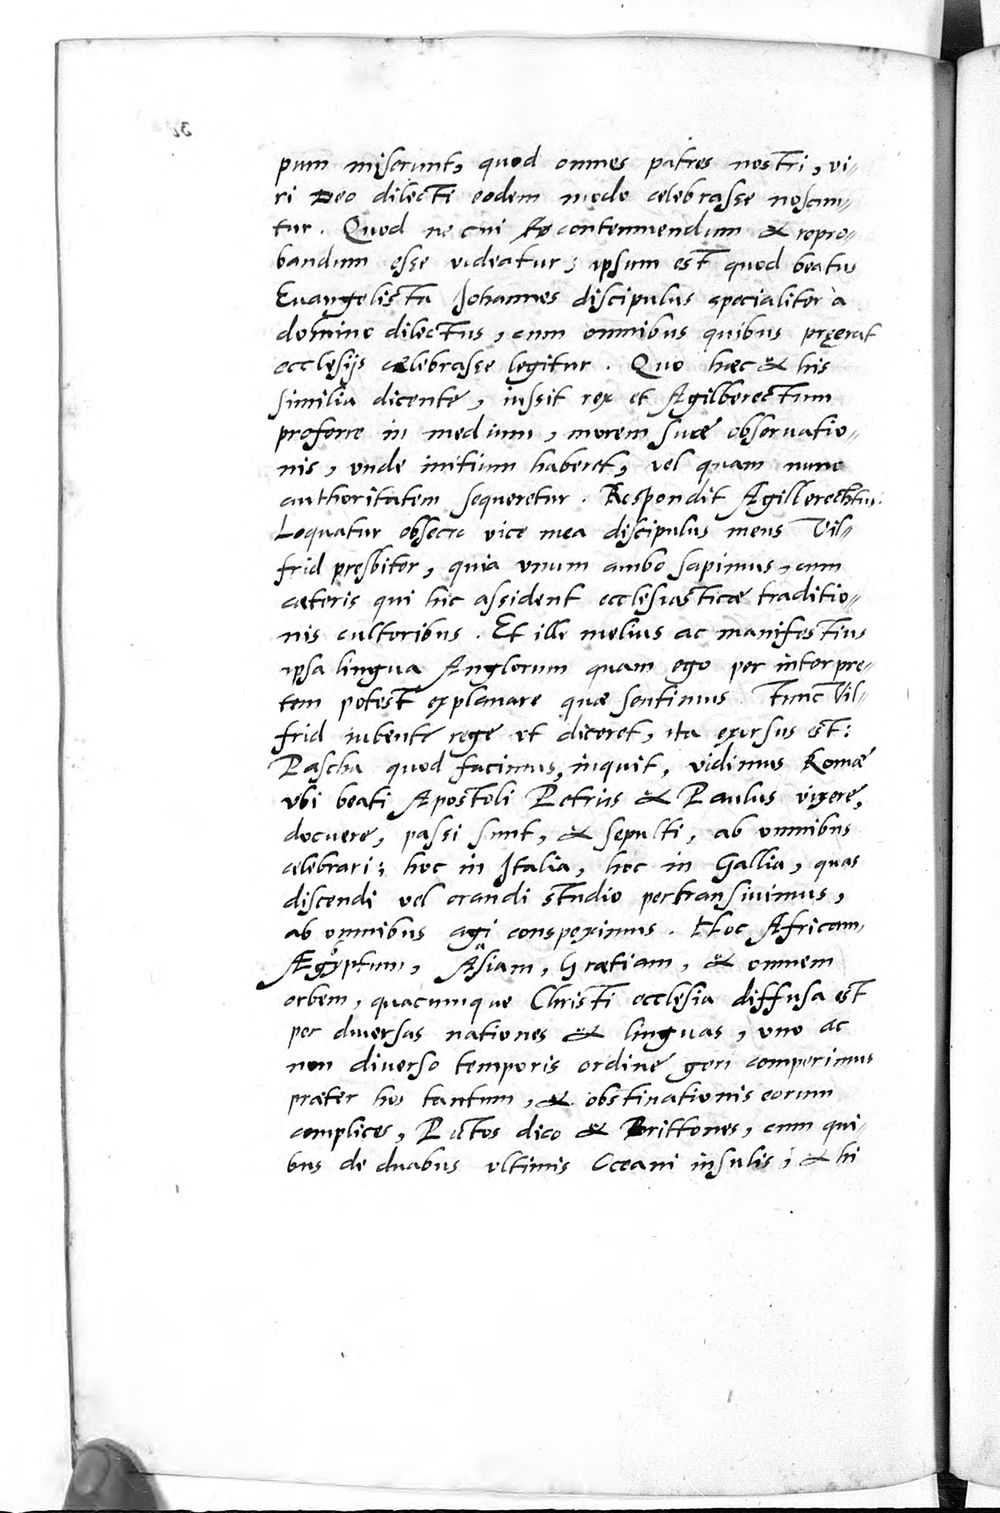 pum miserunt, quod omnes patres nostri, vi-
ri Deo dilecti eodem modo celebrasse noscun-
tur. Quod ne cui contemnendum & repro-
bandum esse videatur; ipsum est quod beatus
Euangelista Johannes discipulus specialiter a
domino dilectus, cum omnibus quibus pręerat
ecclesijs celebrasse legitur. Quo hæc & his
similia dicente, iussit rex et Agilberectum
proferre in medium, morem suæ obseruatio-
nis, vnde initium haberet, vel quam nunc
authoritatem sequeretur. Respondit Ægilberechtus.
Loquatur obsecro vice mea discipulus meus Vil-
frid presbiter, quia vnum ambo sapimus, cum
cæteris qui hic assident ecclesiasticæ traditio-
nis cultoribus. Et ille melius ac manifestius
ipsa lingua Anglorum quam ego per interpre-
tem potest explanare quæ sentimus. Tunc Vil-
frid iubente rege vt diceret, ita exorsus est:
Pascha quod facimus, inquit, vidimus Romæ
vbi beati Apostoli Petrus & Paulus vixere,
docuere, passi sunt, & sepulti, ab omnibus
celebrari; hoc in Italia, hoc in Gallia, quas
discendi vel orandi studio pertransiuimus,
ab omnibus agi conspeximus. Hoc Africam,
Ægyptum, Asiam, Grætiam, & omnem
orbem, quacumque Christi ecclesia diffusa est
per diuersas nationes & linguas, vno ac
non diuerso temporis ordine geri comperimus
præter hos tantum, & obstinationis eorum
complices, Pictos dico & Brittones, cum qui-
bus de duabus vltimis Oceani insulis, & hi